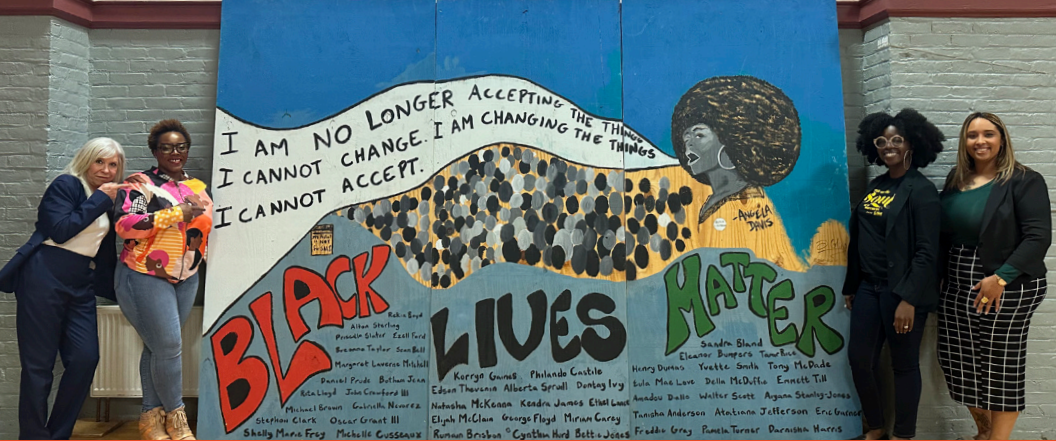 I AM NO LONGER ACCEPTING THE THINGS
I CANNOT CHANGE. I AM CHANGING THE THINGS
I CANNOT ACCEPT.
-ANGELA
DAVIS
BLACK
LIVES
MATTER
Rekia Boyd
Alton Sterling
Priscilla Slater Ezell Ford
Breonna Taylor Sean Bell
Margaret Laverne Mitchell
Daniel Prude Botham Jean
Rita Lloyd John Crawford III
Michael Brown Gabriella Nevarez
Stephon Clark Oscar Grant III
Shelly Marie Frey Michelle Cusseaux
Korryn Gaines Philando Castile
Edson Thevenin Alberta Spruill Dontay Ivy
Natasha McKenna Kendra James Ethel Lance
Elijah McClain George Floyd Miriam Carey
Rumain Brisbon Cynthia Hurd Bettie Jones
Sandra Bland
Eleanor Bumpers Tamir Rice
Henry Dumas Yvette Smith Tony McDade
Eula Mae Love Della McDuffie Emmett Till
Amadou Diallo Walter Scott Aiyana Stanley-Jones
Tanisha Anderson Atatiana Jefferson Eric Garner
Freddie Gray Pamela Turner Darnisha Harris